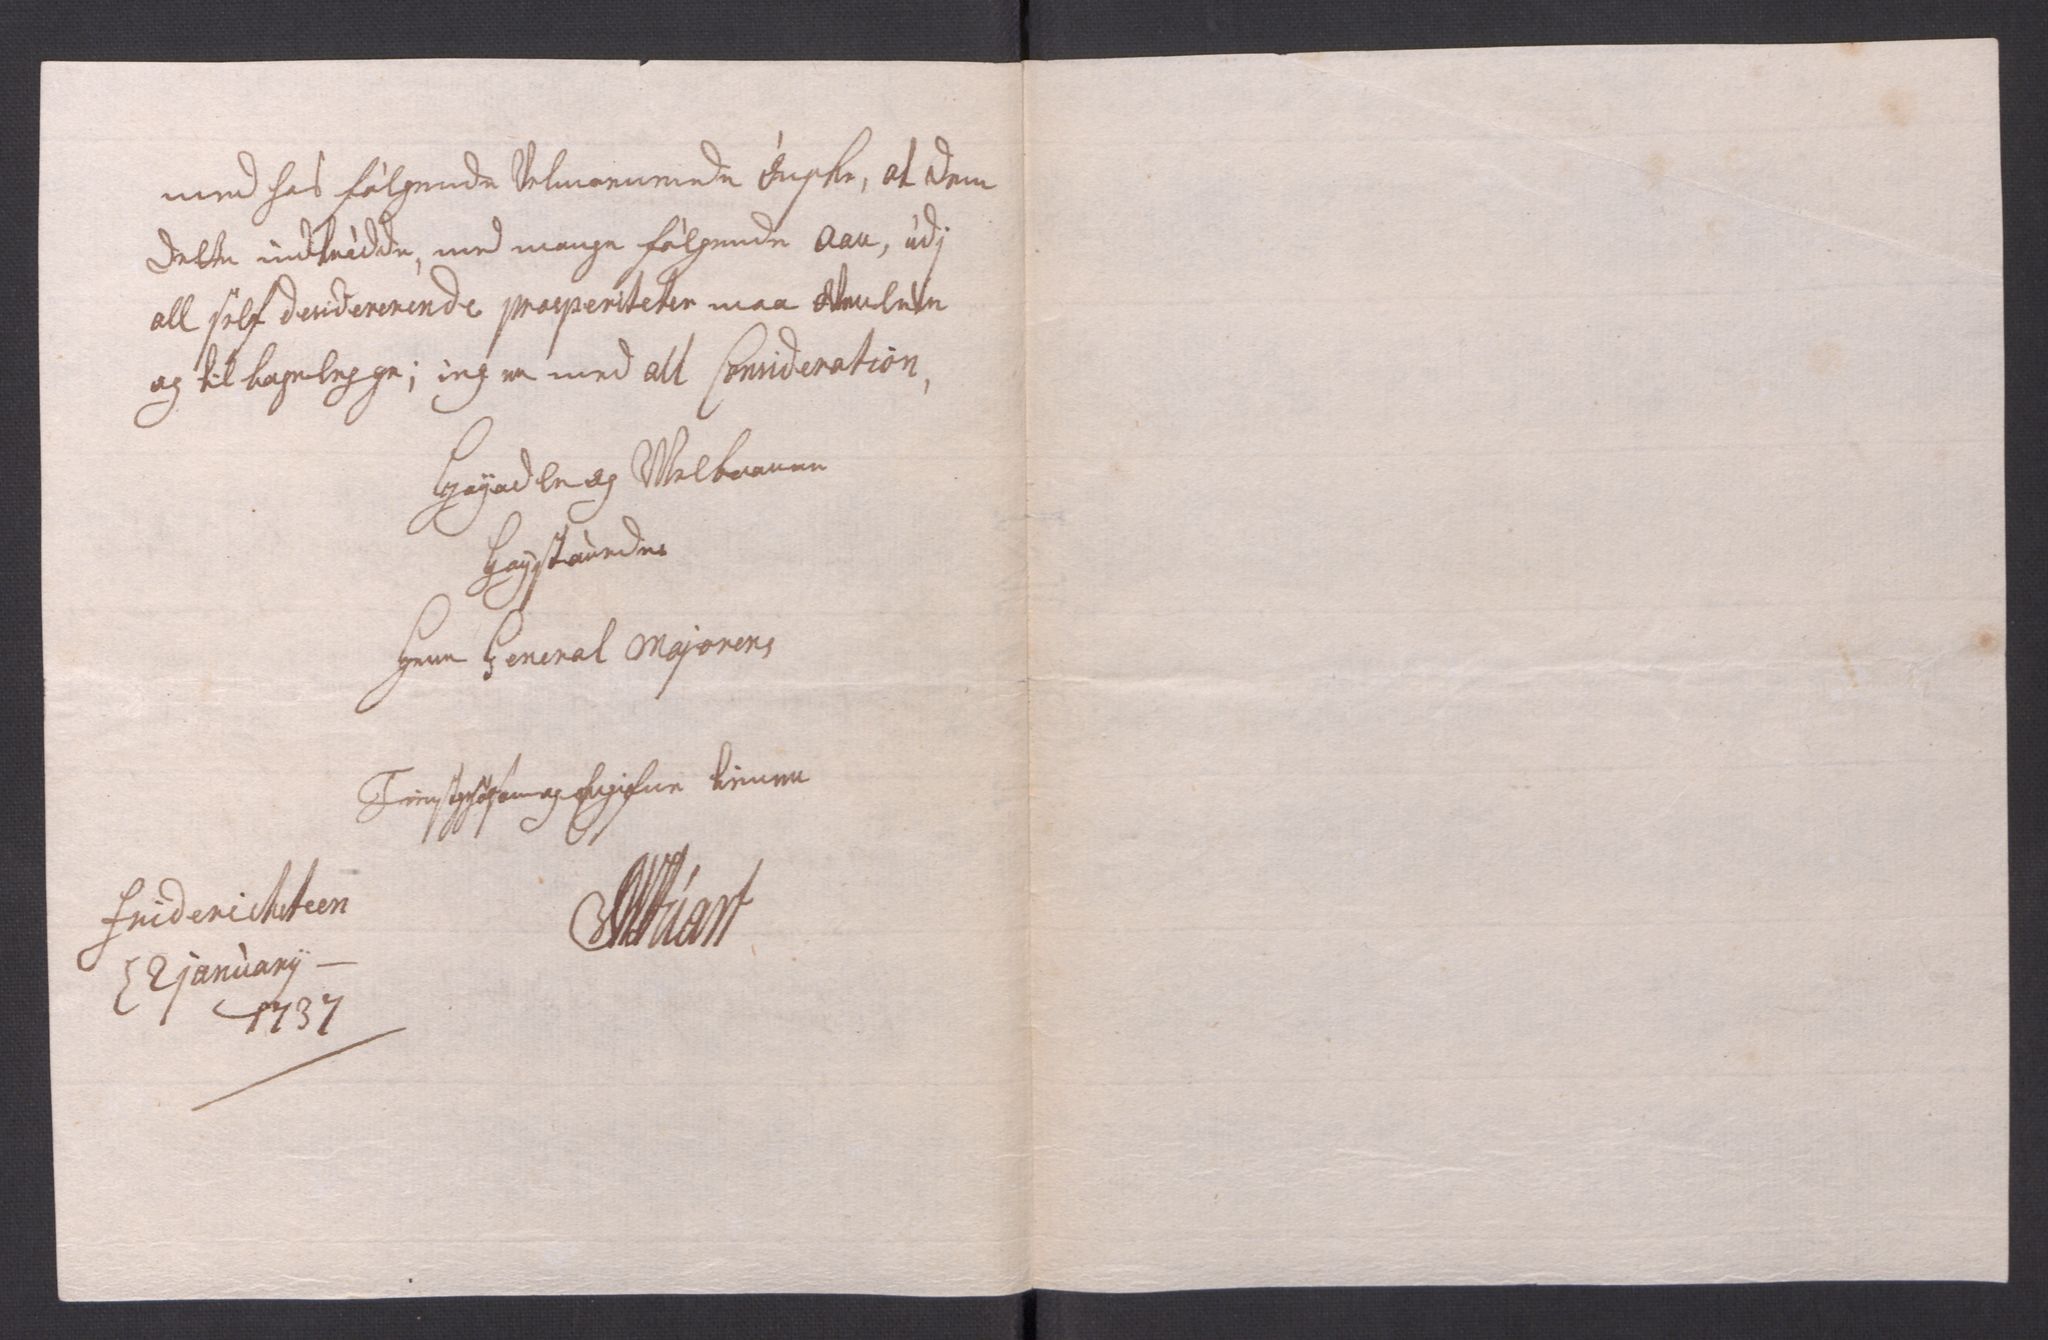 med hos følgende Velmeenende Ønske, at dem
dette indtrædde, med mange følgende Aar, udj
all sølf desidererende prosperiteter maa
og tilbagelegge; ieg er med all Consideration,
Høyædle og Welbaarne
Høystærede
Herr General Majorens
Tienstskyldig og tiener
Stúart
Friderichsteen
2 january
1737